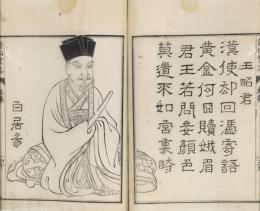 王昭君
漢使却回憑寄語
黄金何日贖蛾眉
君王若問妾顔色
莫道不如宮裏時
白居易